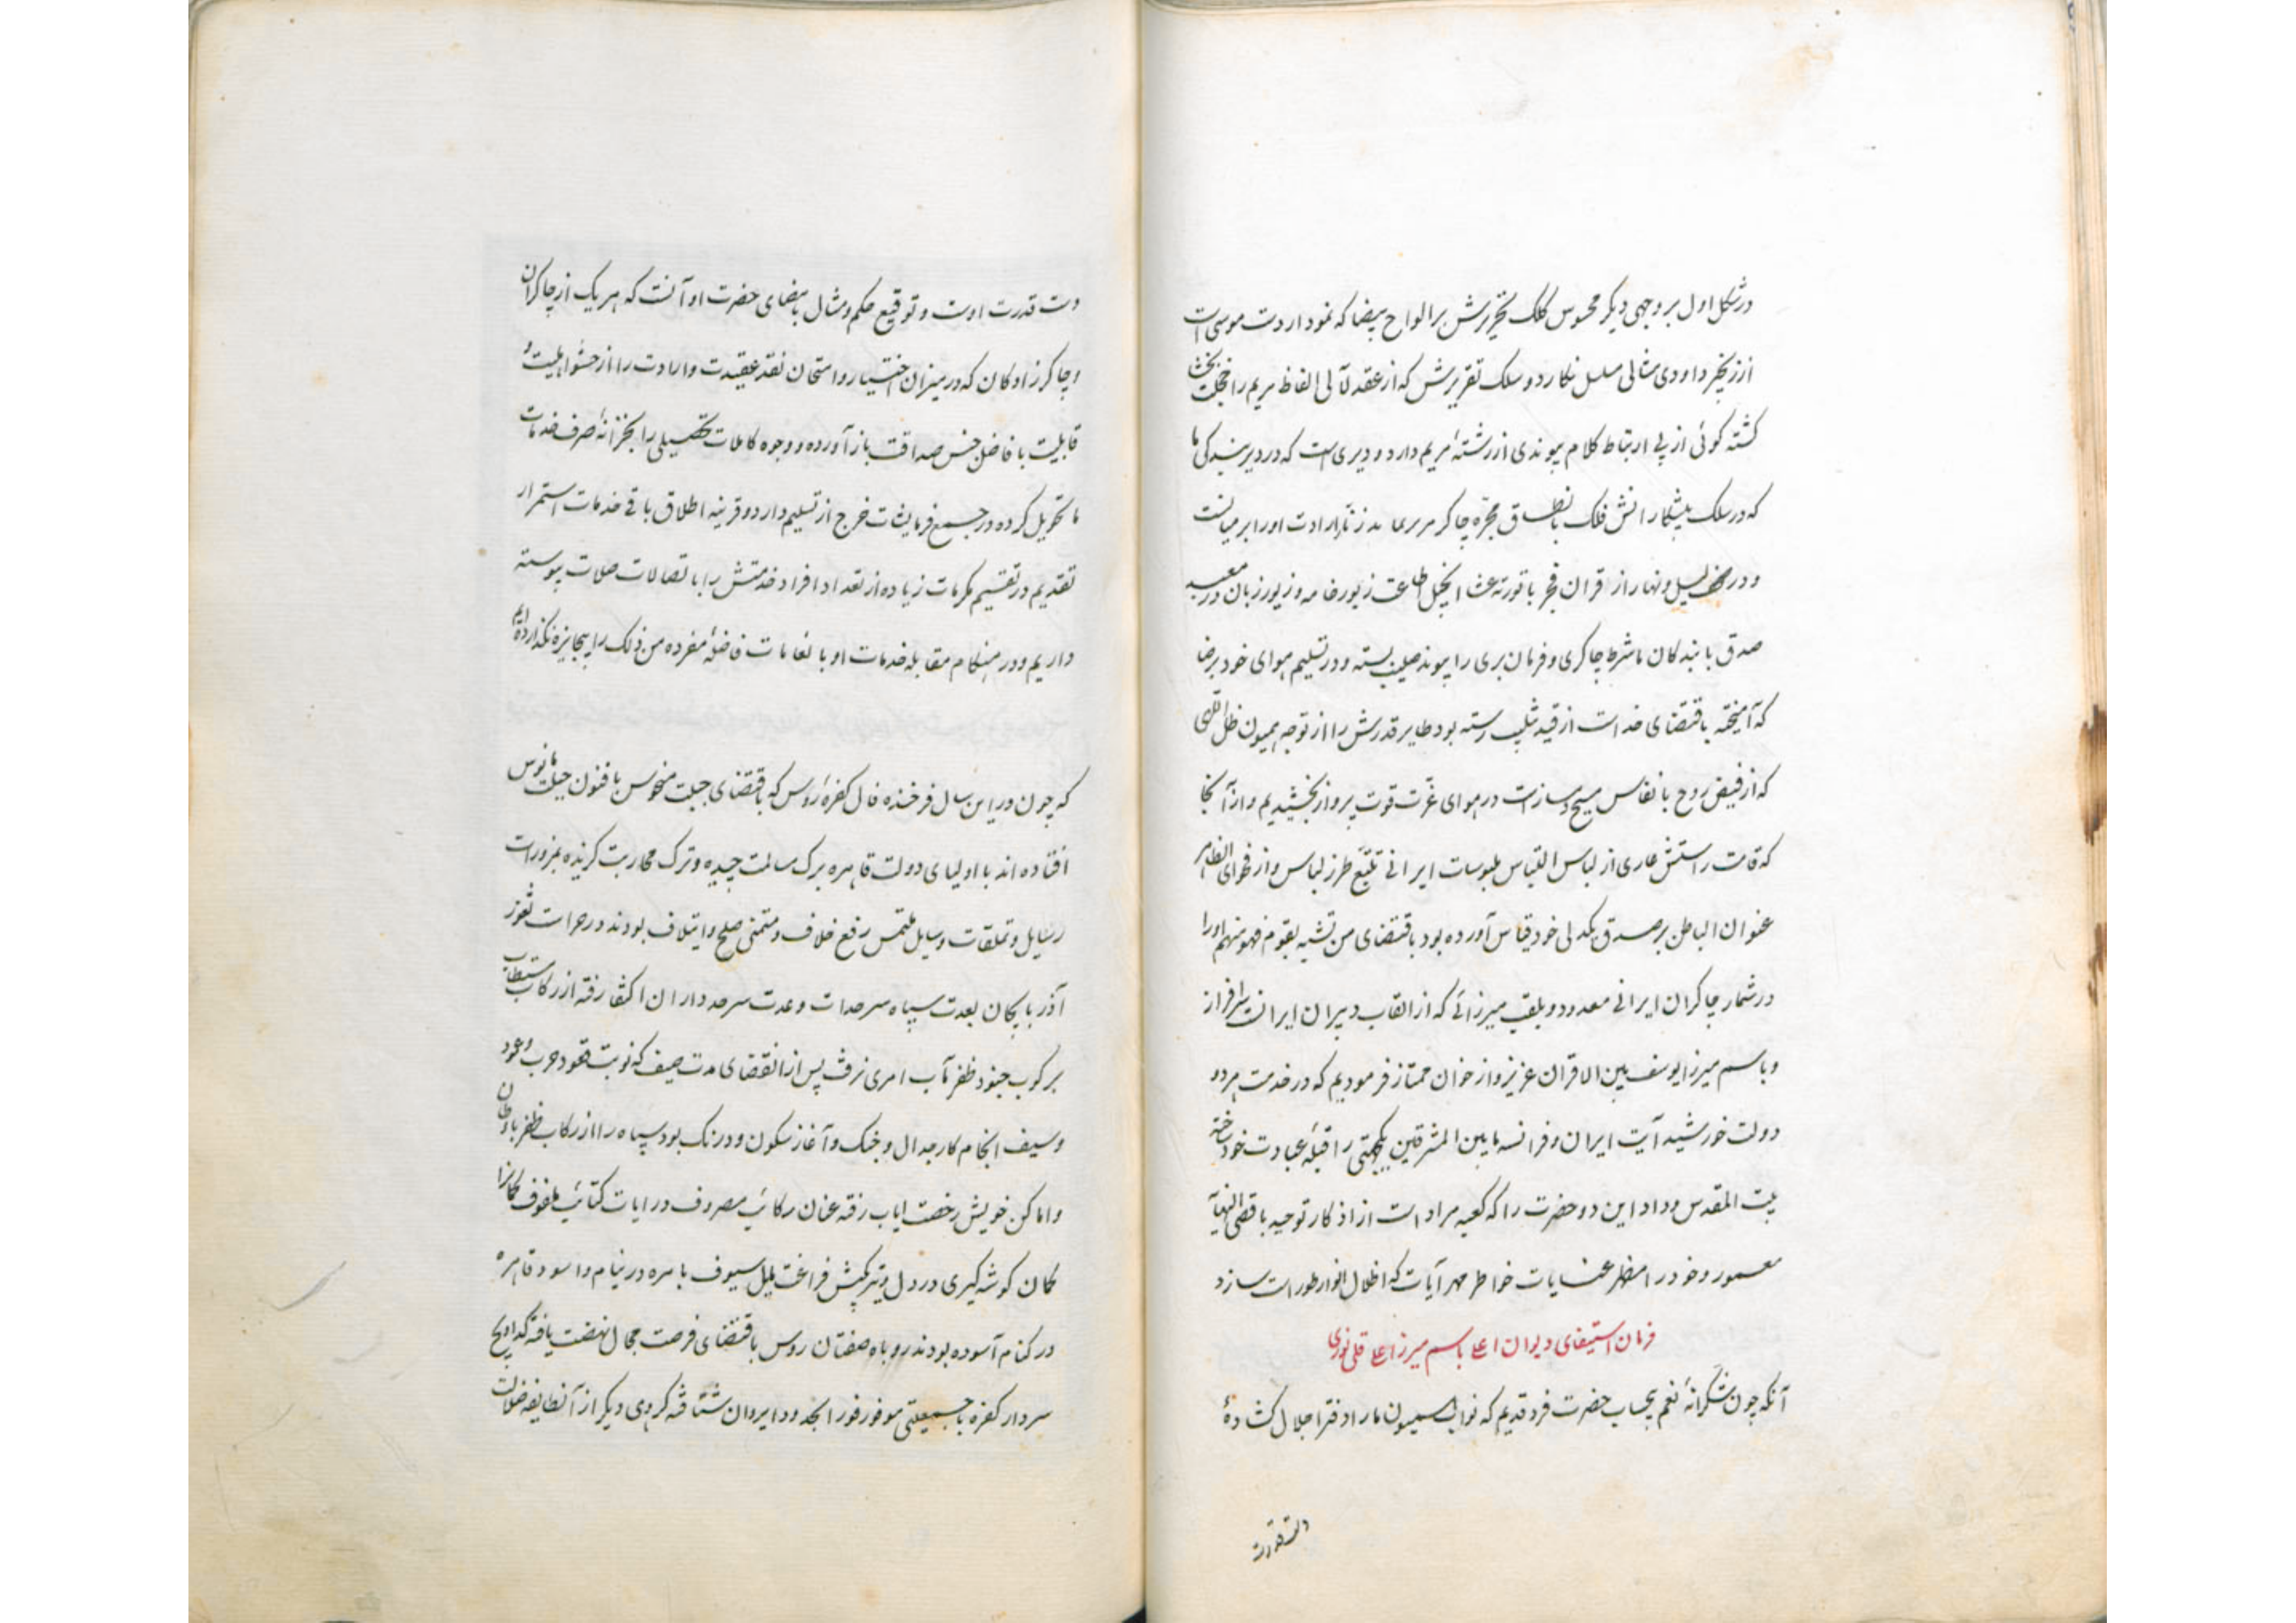 در شکل اول بر وجهی دیگر محسوس کلک تحریرش بر الواح بیضا که نمودار دست موسی است
از زنجیر داودی مثالی مسلسل نگارد و سلک تقریرش که از عقد لآلی الفاظ مریم را خجلت بخش
گشته گوئی از پی ارتباط کلام پیوندی از رشتهٔ مریم دارد و دیری است که در دیر بندگی ما
که در سلک پیشکارانش فلک با نطاق مجره چاکر زنار ارادت او را بر میانست
و در لیل و نهار از قران فجر با توریة عشا انجیل طاعت زیور خامه و زبور زبان در معبد
صدق با بندگان ما شرط چاکری و فرمان بری را پیوند صلیب بسته و در تسلیم هوای خود برضا
که آمیخته باقتضای خداست از قید تثلیث رسته بود طایر قدرش را از توجه همیون ظل اللهی
که از فیض روح با نفاس مسیح دمساز است در هوای عزت قوت پرواز بخشیدیم و از آنجا
که قامت راستش عاری از لباس التباس بملبوسات ایرانی تتبع طرز لباس و از فحوای الظاهر
عنوان الباطن بر صدق یکدلی خود قیاس آورده بود باقتضای من تشبه بقوم فهو منهم او را
در شمار چاکران ایرانی معدود و بلقب میرزائی که از القاب دبیران ایرانست سرافراز
و باسم میرزا یوسف بین الاقران عزیز و از خوان ممتاز فرمودیم که در خدمت هر دو
دولت خورشید آیت ایران و فرانسه مابین المشرقین یکجهتی را قبلهٔ عبادت خود ساخته
بیت المقدس وداد این دو حضرت را که کعبه مراد است از اذکار توحید باقصی النهایه
معمور و خود را مظهر عنایات خاطر مهر آیات که اظلال انوار طور است سازد
فرمان استیفای دیوان اعلی باسم میرزا علی قلی نوری
آنکه چون شکرانهٔ نعم بیحساب حضرت فرد قدیم که نواب همیون ما را دفتر اجلال گشادهٔ
دست قدرت
دست قدرت اوست و توقیع حکم و مثال بامضای حضرت او آنست که هر یک از چاکران
و چاکرزادگان که در میزان اختیار و امتحان نقد عقیدت و ارادت را از حشو اهلیت و
قابلیت با فاضل جنس صداقت باز آورده و وجوه کاملات تحصیلی را بخزانهٔ صرف خدمات
ما تحویل کرده در جمیع فرمایشات خرج از تسلیم دارد و قرینه اطلاق باقی خدمات استمرار
تقدیم در تقسیم مکرمات زیاده از تعداد افراد خدمتش را با تصالات صلات پیوسته
داریم و در هنگام مقابله خدمات او با نعامات فاضلهٔ مفرده من ذلک را بیجایزه نگذارده ایم
که چون در این سال فرخنده فال کفرهٔ روس که باقتضای جبلت منحوس با فنون حیلت مانوس
افتاده اند با اولیای دولت قاهره برگ مسالمت چیده و ترک محاربت گزیده بمزورات
رسایل و تملقات وسایل ملتمس رفع خلاف و متمنی صلح و ایتلاف بودند در حراست ثغور
آذربایجان بعدت سپاه سرحدات و عدت سرحدداران اکتفا رفته از رکاب مستطاب
بر کوب جنود ظفر مآب امری نرفت پس از انقضای مدت صیف که نوبت قعود حرب و غمود
و سیف انجام کار جدال و جنگ و آغاز سکون و درنگ بود سپاه را از رکاب ظفر باوطان
و اماکن خویش رخصت ایاب رفته عنان رکائب مصروف و رایات کتائب ملفوف کمانرا
گمان گوشه گیری در دل و تیر بکیش فراغت مایل سیوف باهره در نیام و اسود قاهره
در کنام آسوده بودند روباه صفتان روس باقتضای فرصت مجال نهضت یافته کداویچ
سردار کفره با جمعیتی موفور فورا بحدود ایروان شتافته گروهی دیگر از آنطایفه ضلالت